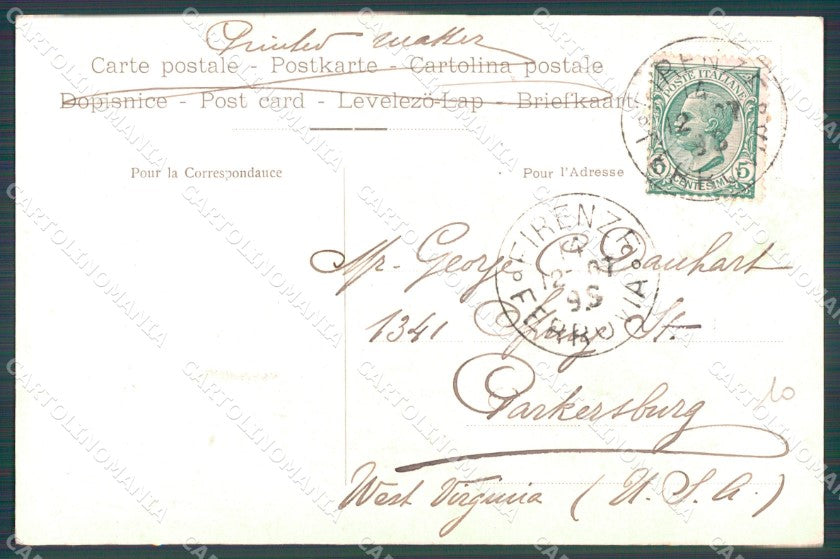 Printed matter
Carte postale - Postkarte - Cartolina postale
Dopisnice - Post card - Levelező-Lap - Briefkaart
Pour la Correspondance
Pour l'Adresse
POSTE ITALIANE
5 CENTESIMI 5
FIRENZE
FERROVIA
Mr. George C.
1341 St.
Parkersburg
West Virginia (U.S.A.)
10
CARTOLINOMANIA